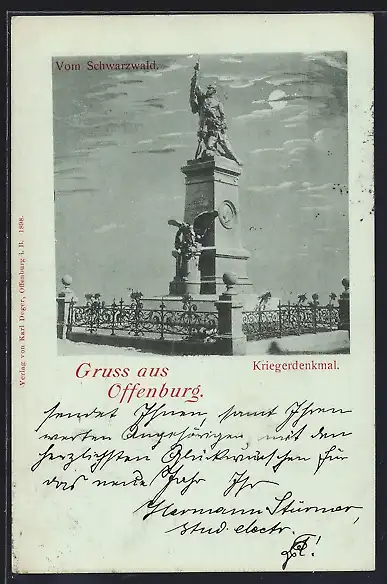 Vom Schwarzwald.
Verlag von Karl Deger, Offenburg i. B. 1898.
Gruss aus
Offenburg.
Kriegerdenkmal.
sendet Ihnen, samt Ihren
werten Angehörigen, mit den
herzlichsten Glückwünschen für
das neue Jahr Ihr
Hermann Stürner,
stud. electr.